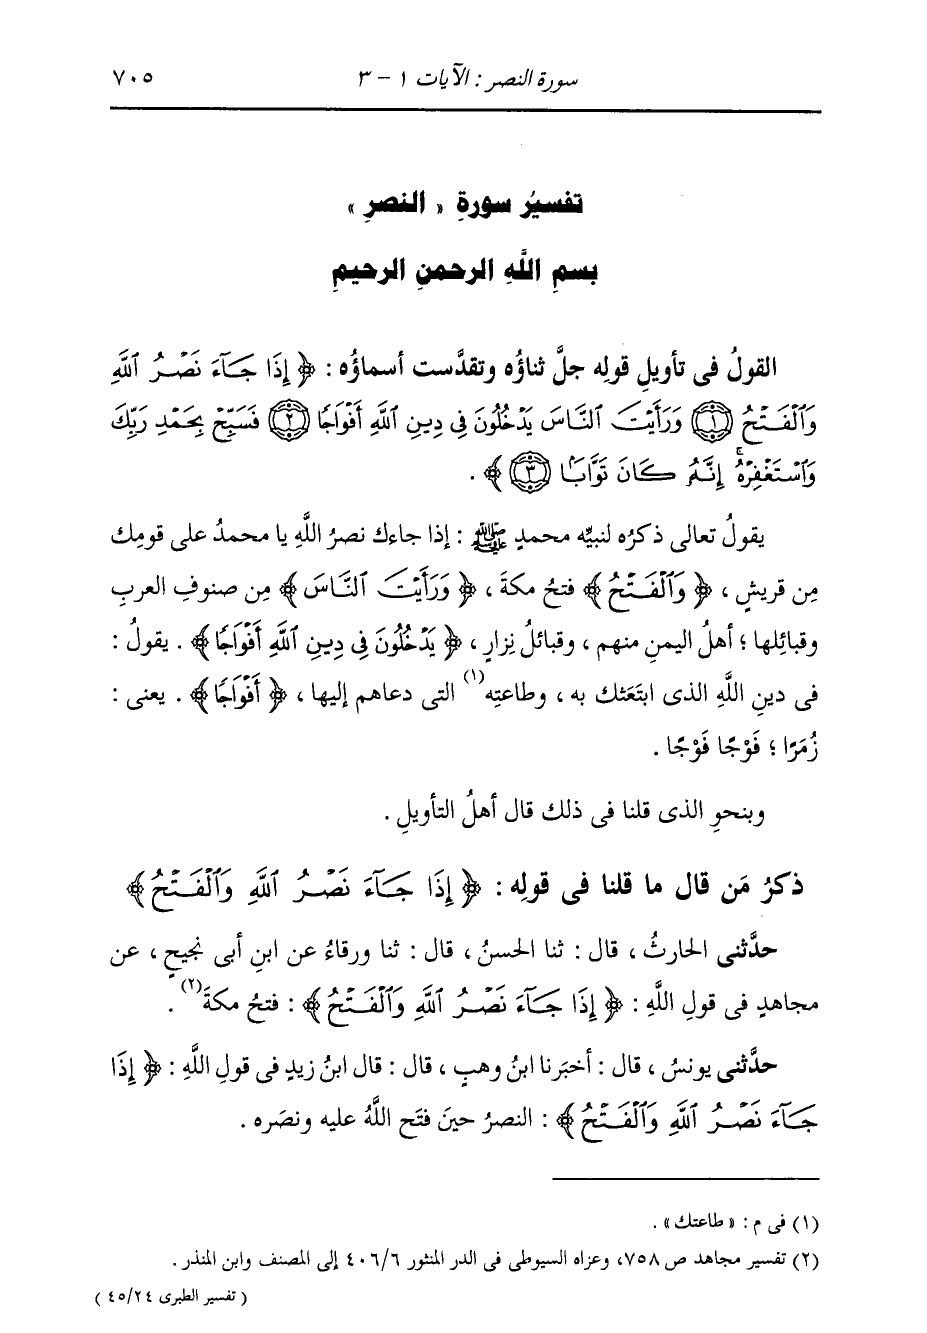 سورة النصر : الآيات ١ - ٣ ٧٠٥
تفسيرُ سورةِ « النصرِ »
بسمِ اللَّهِ الرحمنِ الرحيمِ
القولُ فى تأويلِ قولِه جلَّ ثناؤُه وتقدَّست أسماؤُه : ﴿ إِذَا جَآءَ نَصْرُ اللَّهِ
وَالْفَتْحُ ﴿١﴾ وَرَأَيْتَ النَّاسَ يَدْخُلُونَ فِى دِينِ اللَّهِ أَفْوَاجًا ﴿٢﴾ فَسَبِّحْ بِحَمْدِ رَبِّكَ
وَاسْتَغْفِرْهُ ۚ إِنَّهُ كَانَ تَوَّابًا ﴿٣﴾ ﴾ .
يقولُ تعالى ذكرُه لنبيِّه محمدٍ ﷺ : إذا جاءك نصرُ اللَّهِ يا محمدُ على قومِك
مِن قريشٍ ، ﴿ وَالْفَتْحُ ﴾ فتحُ مكةَ ، ﴿ وَرَأَيْتَ النَّاسَ ﴾ مِن صنوفِ العربِ
وقبائِلها ؛ أهلُ اليمنِ منهم ، وقبائلُ نِزارٍ ، ﴿ يَدْخُلُونَ فِى دِينِ اللَّهِ أَفْوَاجًا ﴾ . يقولُ :
فى دينِ اللَّهِ الذى ابتَعَثك به ، وطاعتِه(١) التى دعاهم إليها ، ﴿ أَفْوَاجًا ﴾ . يعنى :
زُمَرًا ؛ فَوْجًا فَوْجًا .
وبنحوِ الذى قلنا فى ذلك قال أهلُ التأويلِ .
ذكرُ مَن قال ما قلنا فى قولِه : ﴿ إِذَا جَآءَ نَصْرُ اللَّهِ وَالْفَتْحُ ﴾
حدَّثنى الحارثُ ، قال : ثنا الحسنُ ، قال : ثنا ورقاءُ عن ابنِ أبى نَجيحٍ ، عن
مجاهدٍ فى قولِ اللَّهِ : ﴿ إِذَا جَآءَ نَصْرُ اللَّهِ وَالْفَتْحُ ﴾ : فتحُ مكةَ(٢) .
حدَّثنى يونسُ ، قال : أخبَرنا ابنُ وهبٍ ، قال : قال ابنُ زيدٍ فى قولِ اللَّهِ : ﴿ إِذَا
جَآءَ نَصْرُ اللَّهِ وَالْفَتْحُ ﴾ : النصرُ حينَ فتَح اللَّهُ عليه ونصَره .
(١) فى م : « طاعتك » .
(٢) تفسير مجاهد ص ٧٥٨، وعزاه السيوطى فى الدر المنثور ٤٠٦/٦ إلى المصنف وابن المنذر .
( تفسير الطبرى ٤٥/٢٤ )